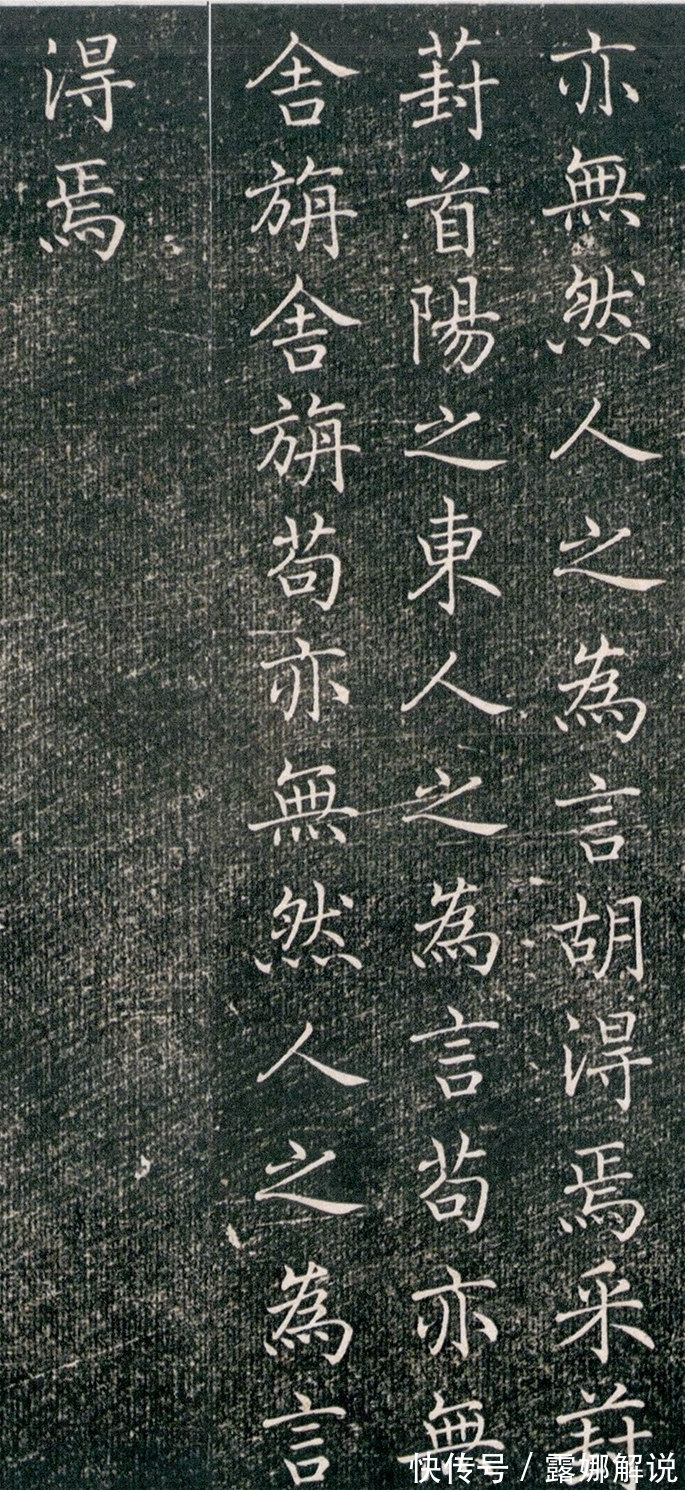 亦無然人之為言胡得焉采葑
葑首陽之東人之為言苟亦無
舍旃舍旃苟亦無然人之為言
得焉
快传号 / 露娜解说